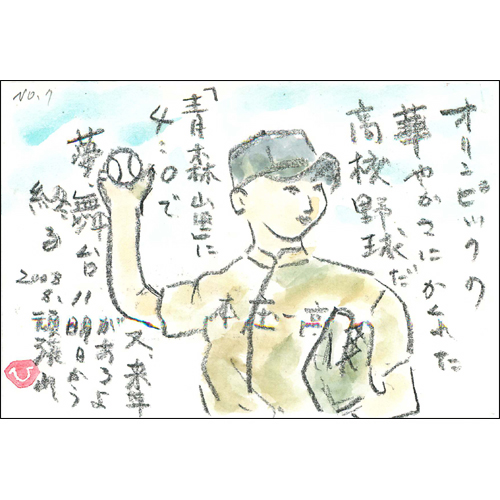 NO.7
オリンピックの
華やかさにかくれた
高校野球だ
「青森山田に
4:0で
夢、舞台ハ
終る
2008.8.
又、来年
があるよ
明日から
頑張れ
本庄一高
ひ